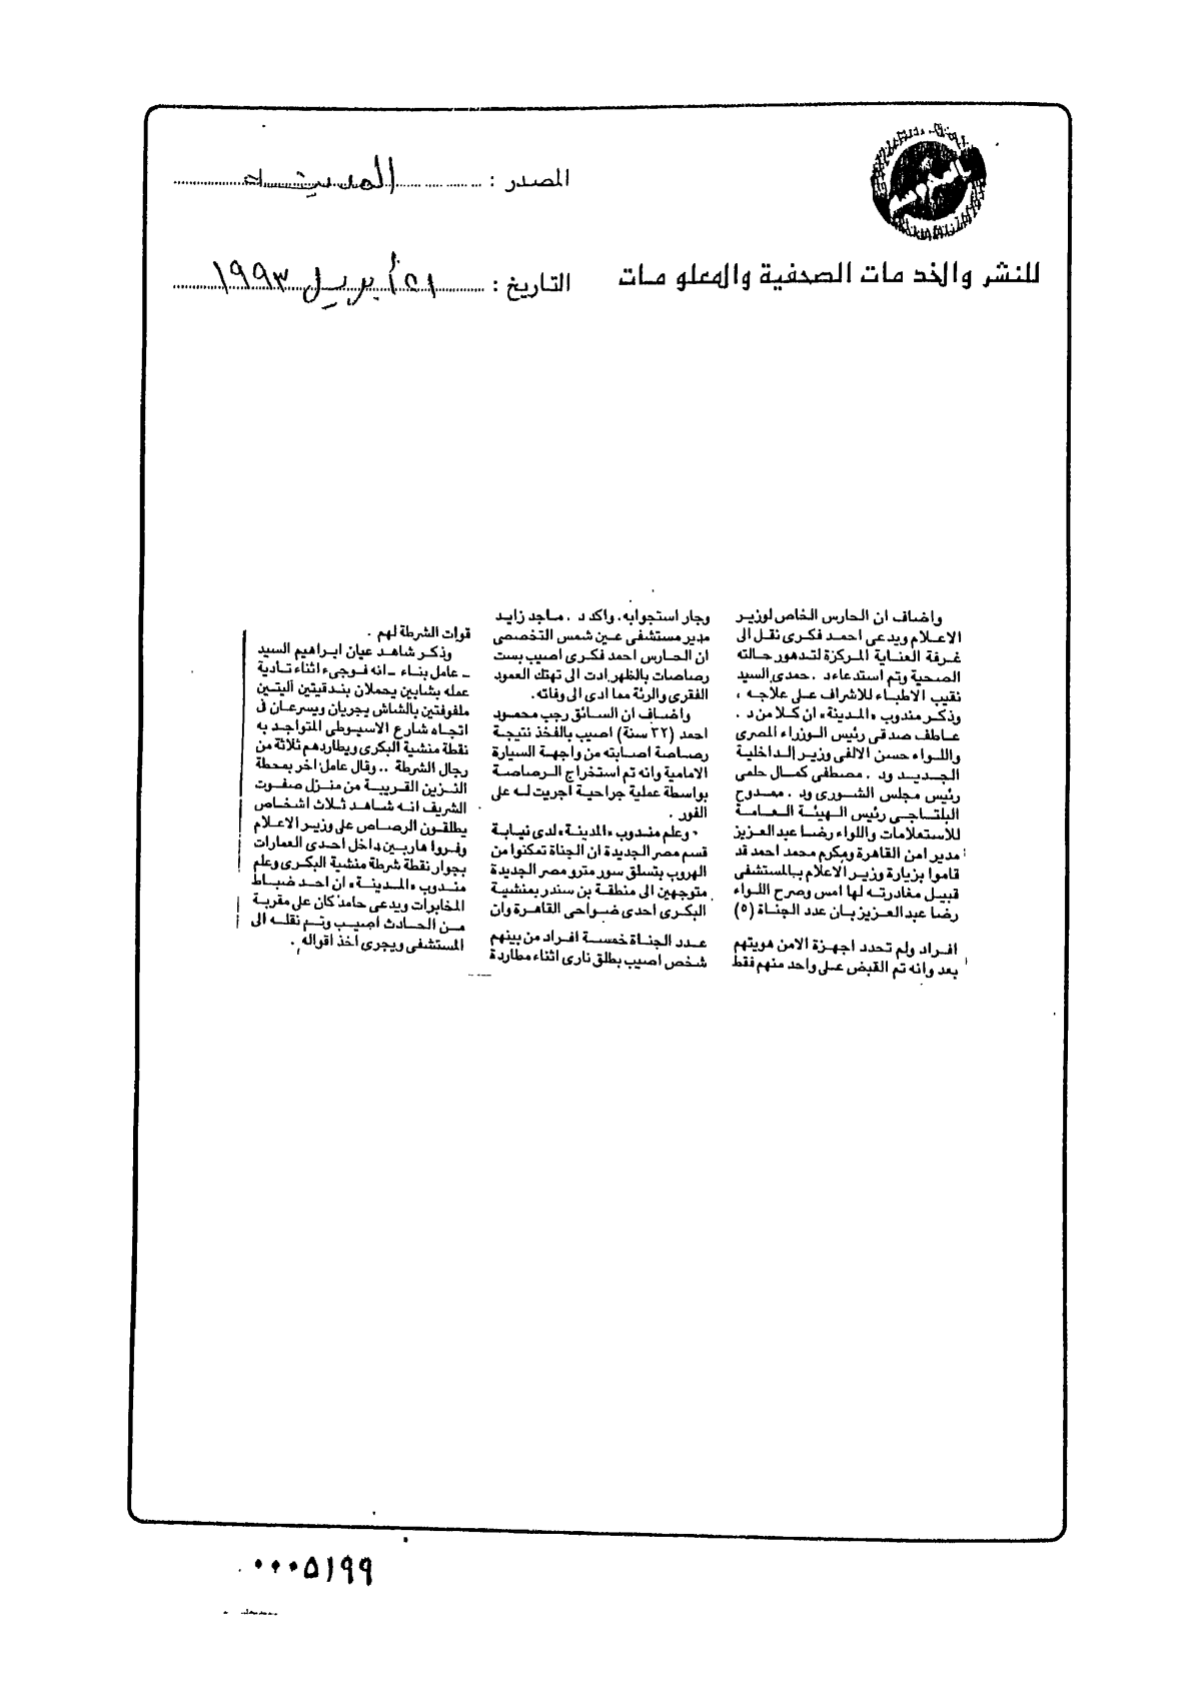 المصدر : المدينة
للنشر والخدمات الصحفية والمعلومات
التاريخ : ٢١ أبريل ١٩٩٣
واضاف ان الحارس الخاص لوزير
الاعلام ويدعى احمد فكرى نقل الى
غرفة العناية المركزة لتدهور حالته
الصحية وتم استدعاء د . حمدى السيد
نقيب الاطباء للاشراف على علاجه ،
وذكر مندوب «المدينة» ان كلا من د .
عاطف صدقى رئيس الوزراء المصرى
واللواء حسن الالفى وزير الداخلية
الجديد ود . مصطفى كمال حلمى
رئيس مجلس الشورى ود . ممدوح
البلتاجى رئيس الهيئة العامة
للاستعلامات واللواء رضا عبدالعزيز
مدير امن القاهرة ومكرم محمد احمد قد
قاموا بزيارة وزير الاعلام بالمستشفى
قبيل مغادرته لها امس وصرح اللواء
رضا عبدالعزيز بان عدد الجناة (٥)
افراد ولم تحدد اجهزة الامن هويتهم
بعد وانه تم القبض على واحد منهم فقط
وجار استجوابه . واكد د . ماجد زايد
مدير مستشفى عين شمس التخصصى
ان الحارس احمد فكرى اصيب بست
رصاصات بالظهر ادت الى تهتك العمود
الفقرى والرئة مما ادى الى وفاته .
واضاف ان السائق رجب محمود
احمد (٣٢ سنة) اصيب بالفخذ نتيجة
رصاصة اصابته من واجهة السيارة
الامامية وانه تم استخراج الرصاصة
بواسطة عملية جراحية اجريت له على
الفور .
وعلم مندوب «المدينة» لدى نيابة
قسم مصر الجديدة ان الجناة تمكنوا من
الهروب بتسلق سور مترو مصر الجديدة
متوجهين الى منطقة بن سندر بمنشية
البكرى احدى ضواحى القاهرة وان
عدد الجناة خمسة افراد من بينهم
شخص اصيب بطلق نارى اثناء مطاردة
قوات الشرطة لهم .
وذكر شاهد عيان ابراهيم السيد
ـ عامل بناء ـ انه فوجىء اثناء تادية
عمله بشابين يحملان بندقيتين أليتين
ملفوفتين بالشاش يجريان ويسرعان فى
اتجاه شارع الاسيوطى المتواجد به
نقطة منشية البكرى ويطاردهم ثلاثة من
رجال الشرطة .. وقال عامل اخر بمحطة
البنزين القريبة من منزل صفوت
الشريف انه شاهد ثلاث اشخاص
يطلقون الرصاص على وزير الاعلام
وفروا هاربين داخل احدى العمارات
بجوار نقطة شرطة منشية البكرى وعلم
مندوب «المدينة» ان احد ضباط
المخابرات ويدعى حامد كان على مقربة
من الحادث اصيب وتم نقله الى
المستشفى ويجرى اخذ اقواله .
٠٠٠٥١٩٩